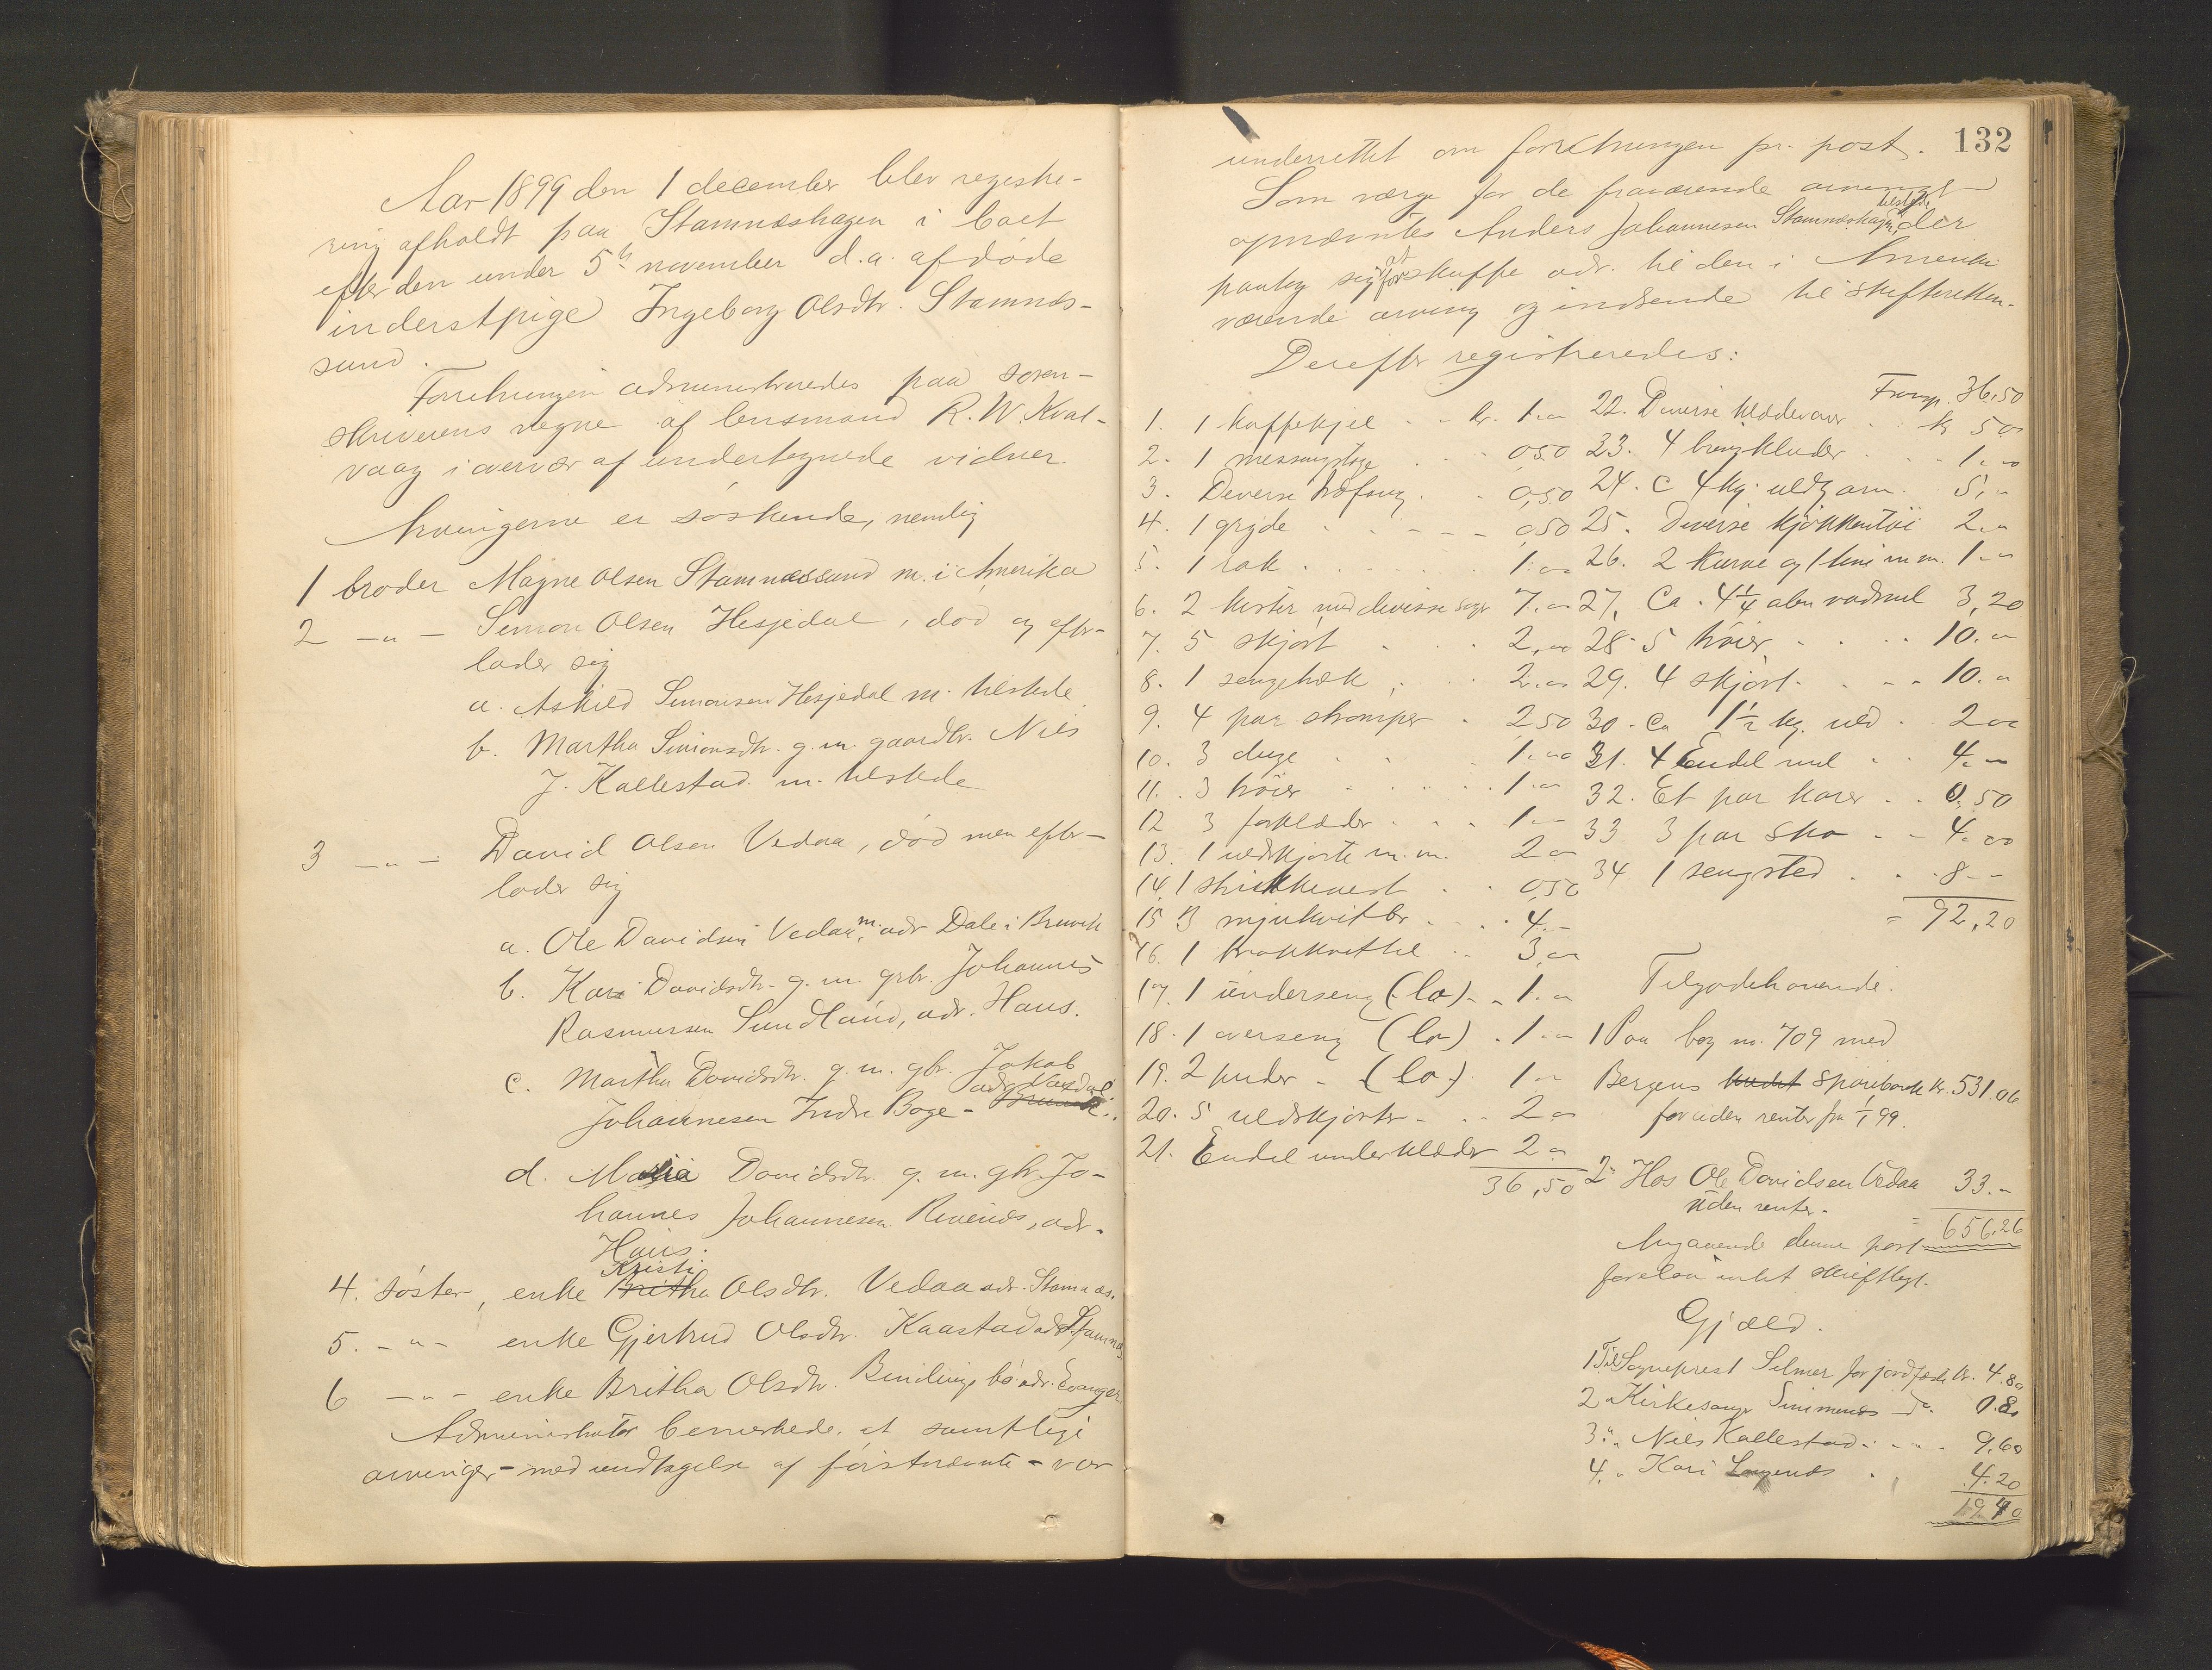 Aar 1899 den 1 december blev registre-
ring afholdt paa Stamneshagen i boet
efter den under 5te november d.a. afdøde
inderstpige Ingeborg Olsdtr. Stamnes-
sund.
Forretningen administreredes paa soren-
skriverens vegne af lensmand R. W. Kval-
vaag i overvær af undertegnede vidner.
Arvingerne er søskende, nemlig
1 broder Magne Olsen Stamnæssund m. i Amerika
2 -"- Simon Olsen Hesjedal, død og efter-
lader sig
a. Askild Simonsen Hesjedal m. tilstede
b. Martha Simonsdtr. g.m. gaardbr. Nils
J. Kallestad m. tilstede
3 -"- David Olsen Vedaa, død men efter-
lader sig
a. Ole Davidsen Vedaa, m. adr Dale i Bruvik
b. Kari Davidsdtr. g.m. gbr. Johannes
Rasmussen Sundland, adr. Haus.
c. Martha Davidsdtr. g.m. gbr. Jakob
Johannesen Indre Boge - adr Vaxdal.
d. Maria Davidsdtr. g.m. gbr. Jo-
hannes Johannesen Revenes, adr.
Haus.
4. søster, enke Kristi Olsdtr. Vedaa adr. Stamnæs.
5. -"- enke Gjertrud Olsdtr. Kaastad adr. Stamnæs
6 -"- enke Britha Olsdtr. Bendingebø adr. Evanger.
Administrator bemerkede, at samtlige
arvinger - med undtagelse af førstnævnte - var
132
underrettet om forretningen pr. post.
Som værge for de fraværende arvinger
opnævntes Anders Johannesen Stamneshagen, tilstede der
paatog sig at forskaffe adr. til den i Amerika
værende arving og indsende til skifteretten.
Derefter registreredes:
1. 1 kaffekjel . . kr. 1.00
2. 1 messingstage . . 0,50
3. Deverse træfang . . 0,50
4. 1 gryde . . . 0,50
5. 1 rok . . . 1.00
6. 2 kister med diverse sager 7.00
7. 5 skjørt . . . 2,00
8. 1 sengetæk . . 2.00
9. 4 par strømper . 2,50
10. 3 duge . . . 1.00
11. 3 trøier . . . 1.00
12 3 forklæder . . . 1.--
13. 1 uldskjorte m.m. 2 00
14. 1 strikkevest . . 0,50
15 3 mjukvitler . . . 4.--
16. 1 krokkvittel . . 3,00
17. 1 underseng (lo) . . 1.00
18. 1 overseng (lo) . 1.--
19. 2 puder - (lo) 1 00
20. 5 uldskjorter . . . 2 00
21. Endel underklæder 2 00
36,50
Transp. 36,50
22. Diverse klædevarer . . kr 5 00
23. 4 brugkluder . . . 1.00
24. c 4 kg. uldgarn. 5,00
25. Diverse kjøkkentøi 2.00
26. 2 kurve og 1 tine m.m. 1.00
27, Ca. 4 1/4 alen vadmel 3,20
28. 5 trøier . . . . 10.00
29. 4 skjørt . . . 10.00
30. Ca 1 1/2 kg. uld . 2 00
31. Endel mel . . 4.--
32. Et par karer . . 0,50
33 3 par sko . . 4.00
34 1 sengsted . . . 8.--
= 92,20
Tilgodehavende.
1 Paa bog no. 709 med
Bergens sparebank kr. 531.06
foruden renter fra 1/1 99.
2. Hos Ole Davidsen Vedaa 33.--
uden renter.
= 656,26
Angaaende denne post
forelaa intet skriftligt.
Gjæld.
1 Til Sogneprest Selmer for jordfæst kr. 4.80
2 " Kirkesanger Simmenes do. 0.80
3. " Niels Kallestad . . . . 9,60
4. " Kari . 4.20
19.40